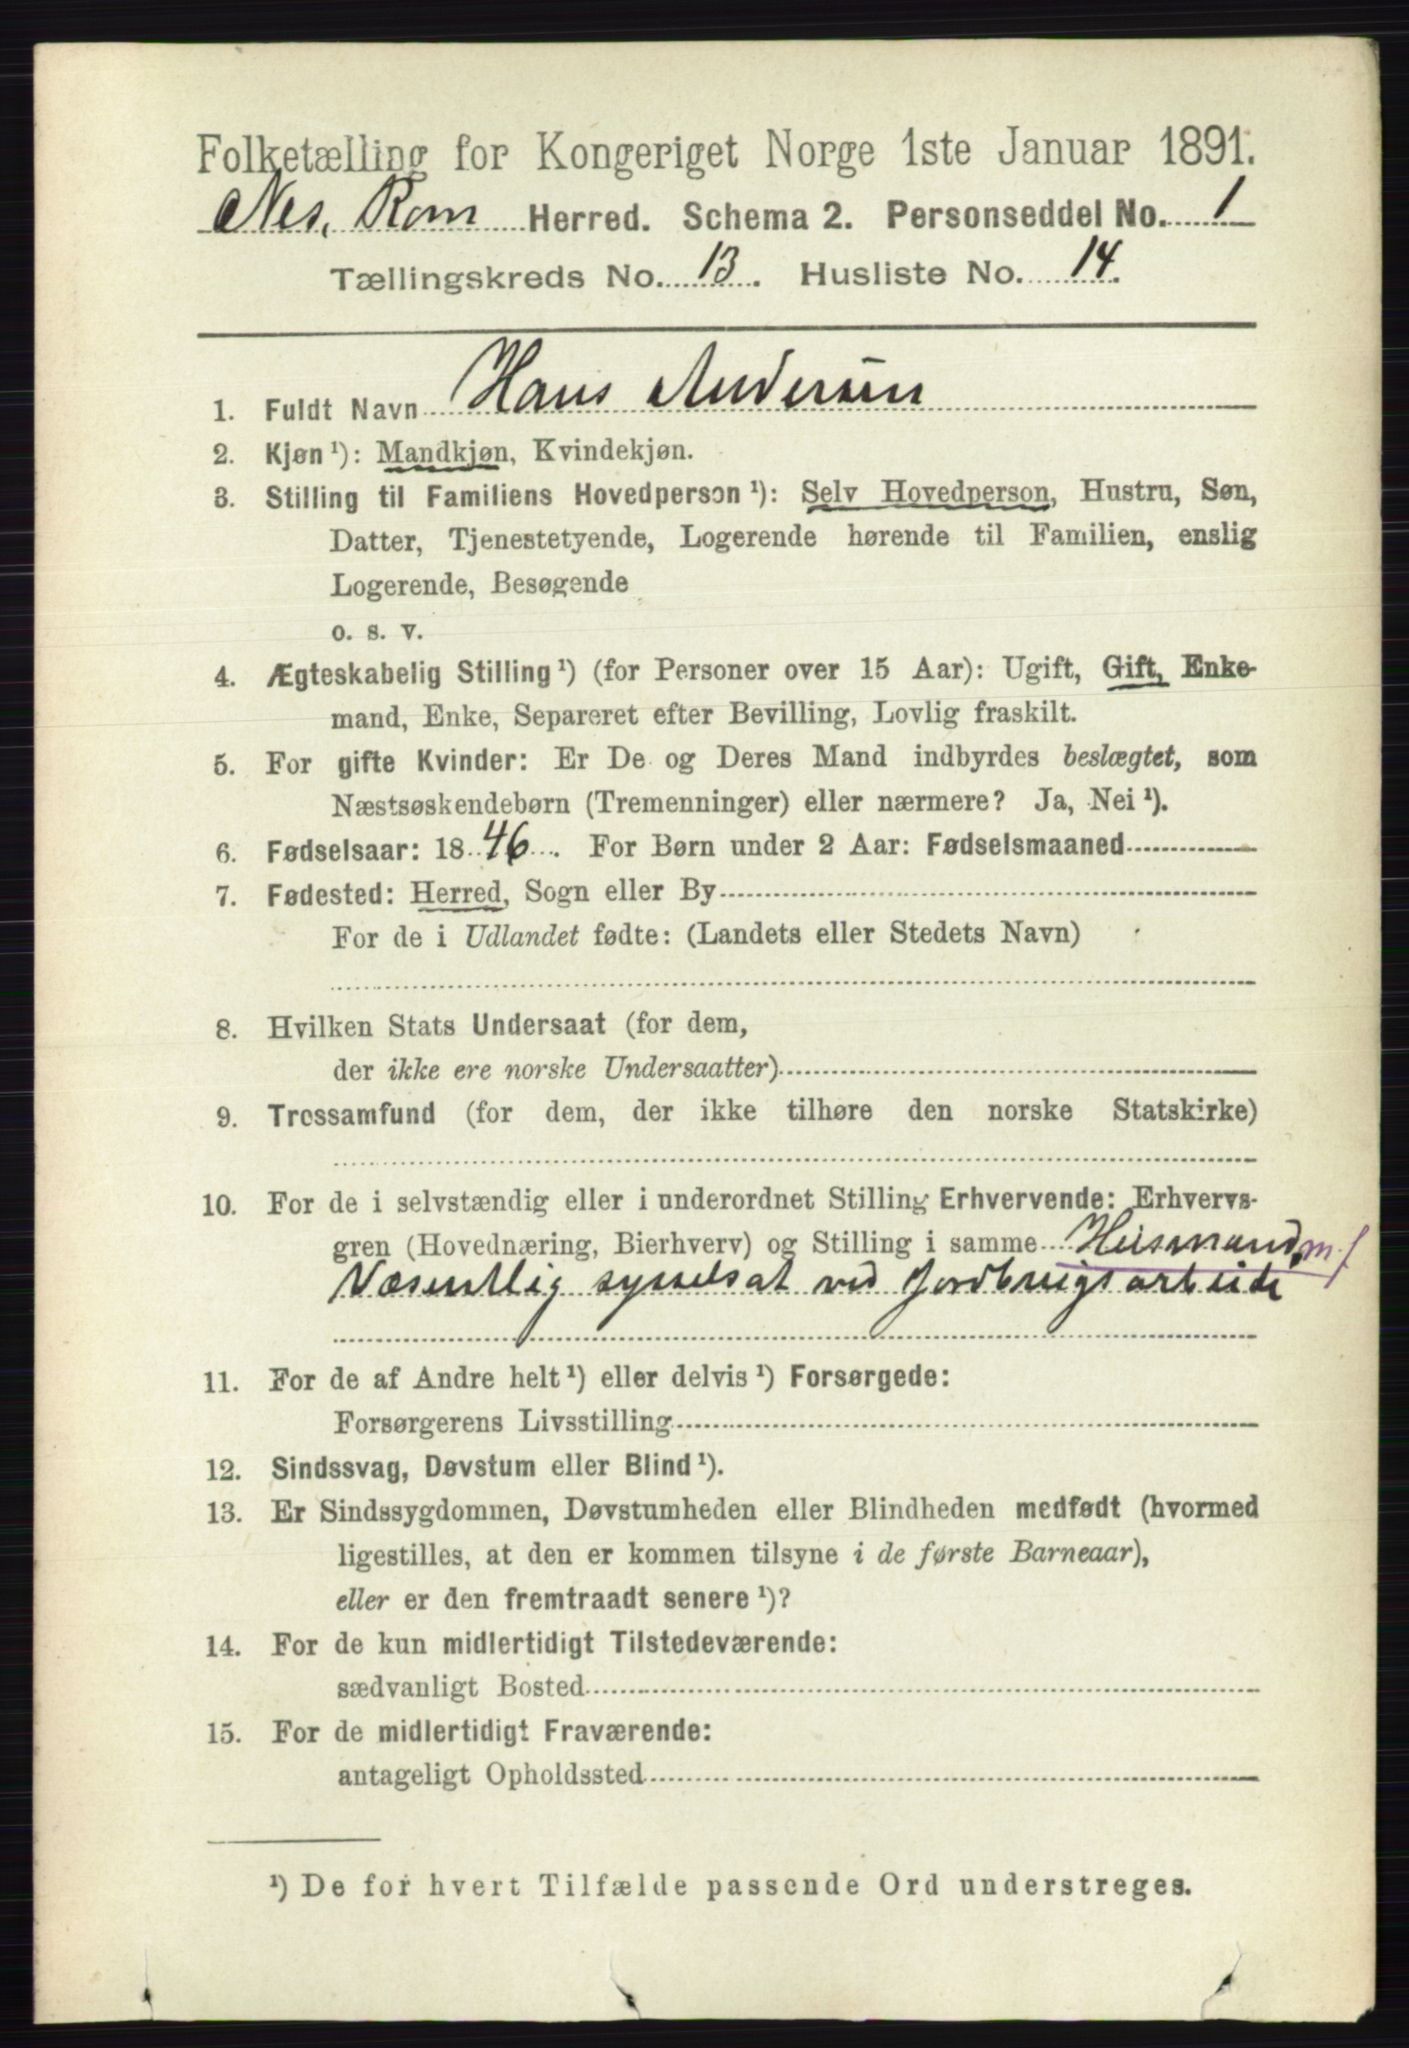 Folketælling for Kongeriget Norge 1ste Januar 1891.
Nes, Rom Herred. Schema 2. Personseddel No. 1
Tællingskreds No. 13. Husliste No. 14.
1. Fuldt Navn Hans Andersen
2. Kjøn ¹): Mandkjøn, Kvindekjøn.
3. Stilling til Familiens Hovedperson ¹): Selv Hovedperson, Hustru, Søn,
Datter, Tjenestetyende, Logerende hørende til Familien, enslig
Logerende, Besøgende
o. s. v.
4. Ægteskabelig Stilling ¹) (for Personer over 15 Aar): Ugift, Gift, Enke-
mand, Enke, Separeret efter Bevilling, Lovlig fraskilt.
5. For gifte Kvinder: Er De og Deres Mand indbyrdes beslægtet, som
Næstsøskendebørn (Tremenninger) eller nærmere? Ja, Nei ¹).
6. Fødselsaar: 1846. For Børn under 2 Aar: Fødselsmaaned
7. Fødested: Herred, Sogn eller By
For de i Udlandet fødte: (Landets eller Stedets Navn)
8. Hvilken Stats Undersaat (for dem,
der ikke ere norske Undersaatter)
9. Trossamfund (for dem, der ikke tilhøre den norske Statskirke)
10. For de i selvstændig eller i underordnet Stilling Erhvervende: Erhvervs-
gren (Hovednæring, Bierhverv) og Stilling i samme Husmand, m. j
Væsentlig sysselsat ved Jordbrugsarbeide
11. For de af Andre helt ¹) eller delvis ¹) Forsørgede:
Forsørgerens Livsstilling
12. Sindssvag, Døvstum eller Blind ¹).
13. Er Sindssygdommen, Døvstumheden eller Blindheden medfødt (hvormed
ligestilles, at den er kommen tilsyne i de første Barneaar),
eller er den fremtraadt senere ¹)?
14. For de kun midlertidigt Tilstedeværende:
sædvanligt Bosted
15. For de midlertidigt Fraværende:
antageligt Opholdssted
¹) De for hvert Tilfælde passende Ord understreges.